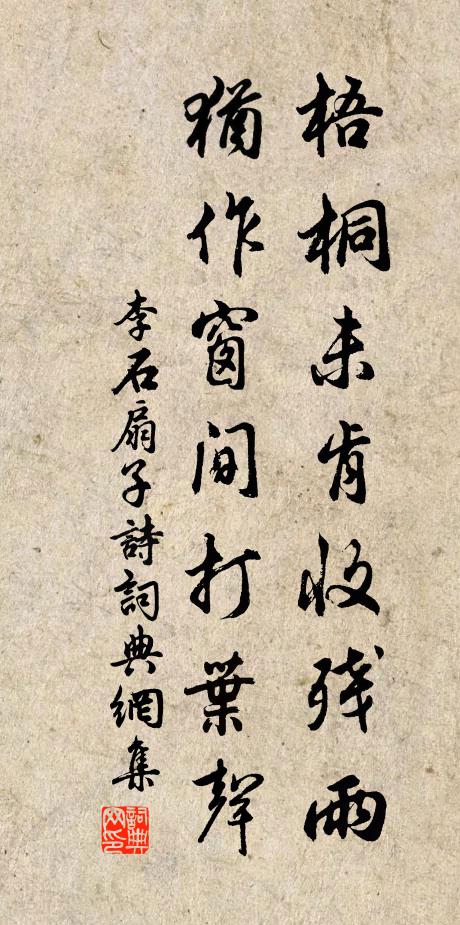 梧桐未肯收残雨
猶作窗間打葉聲
李石扇子詩詞典網集
詞典網印